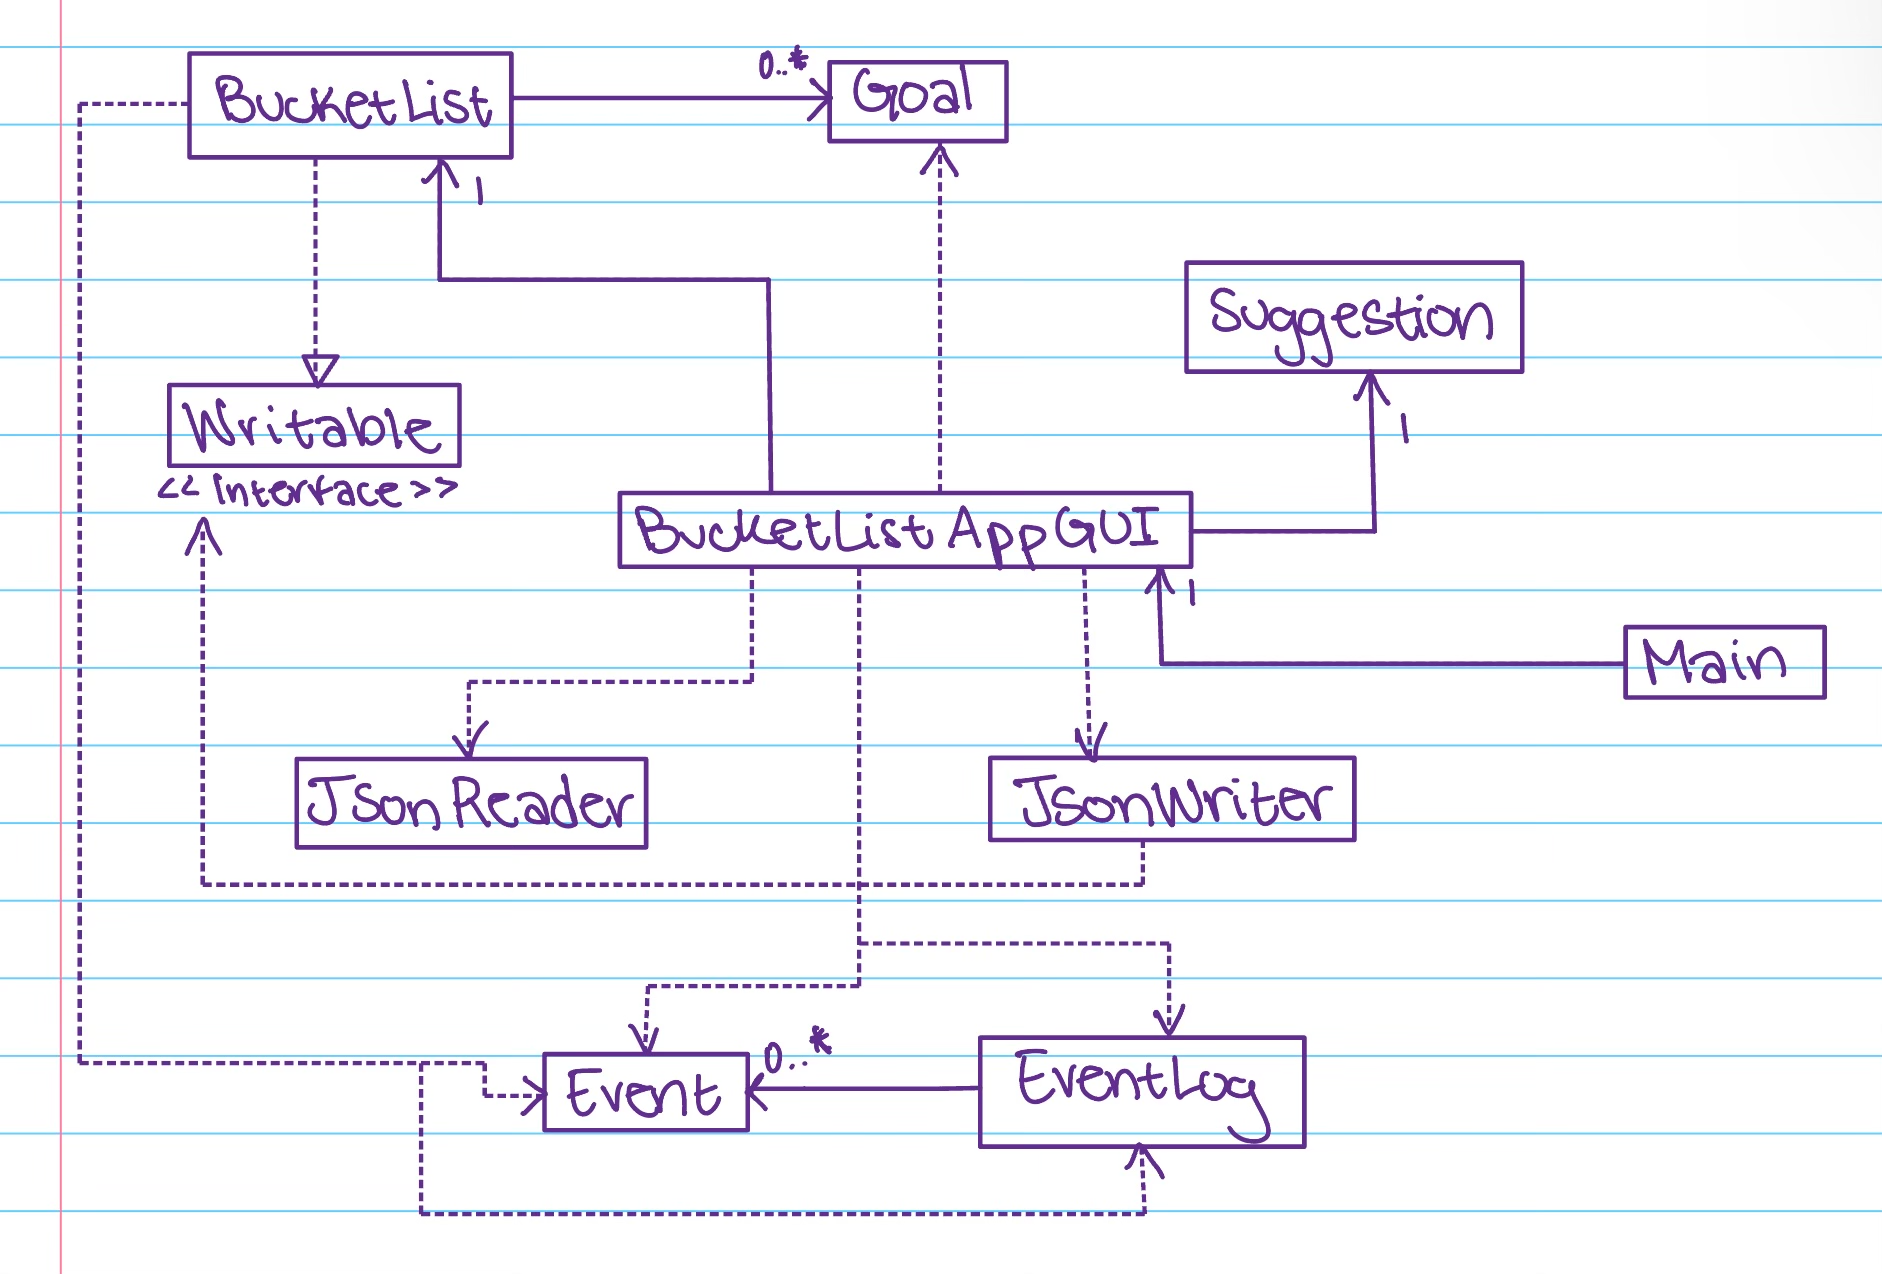 BucketList
0..*
Goal
1
Suggestion
1
Writable
<< interface >>
BucketListAppGUI
1
Main
JsonReader
JsonWriter
0..*
Event
EventLog